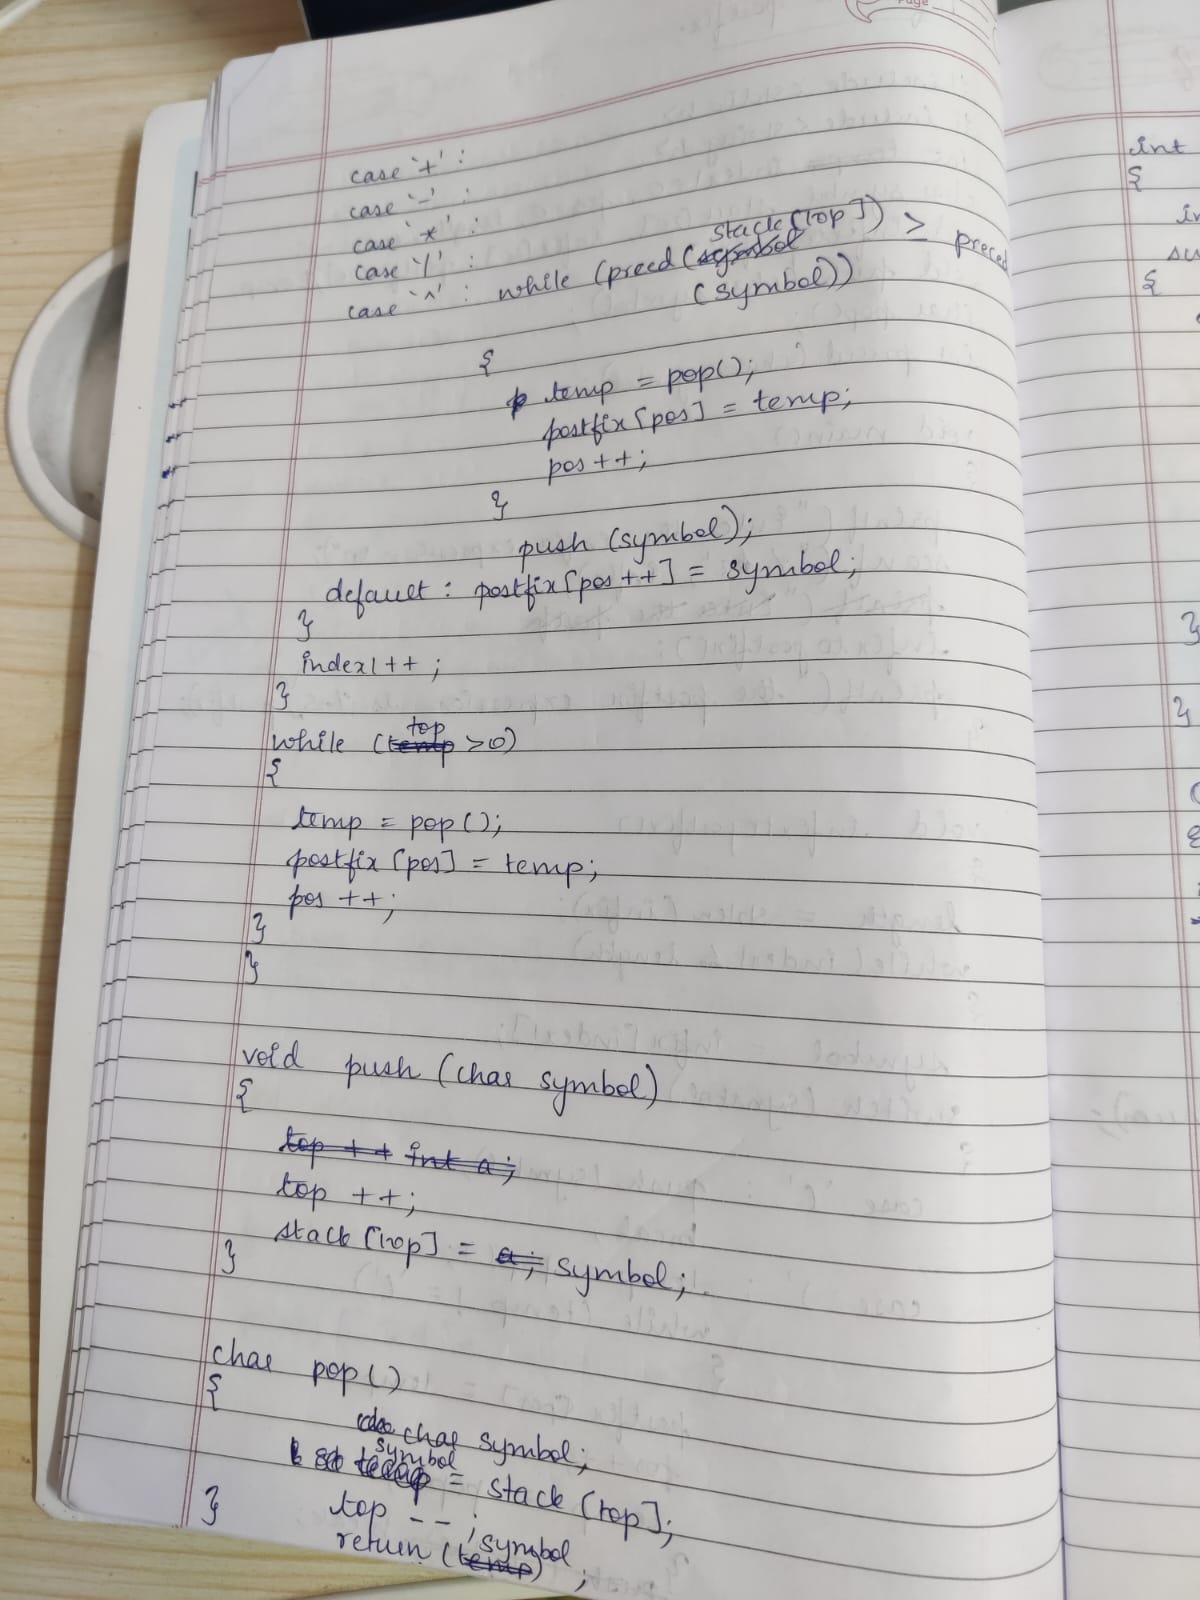 Page
case '+' :
case '-' :
case '*' :
case '/' :
case '^' : while (preced (symbol stack[top]) ≥ preced
(symbol))
{
temp = pop();
postfix[pos] = temp;
pos++;
}
push (symbol);
default : postfix[pos++] = symbol;
}
index1++ ;
}
while (temp top >0)
{
temp = pop();
postfix [pos] = temp;
pos ++;
}
}
void push (char symbol)
{
top ++ int a;
top ++;
stack [top] = a; symbol;
}
char pop()
{
char symbol;
symbol = stack [top];
} top --;
return (temp symbol) ;
int
{
{
}
}